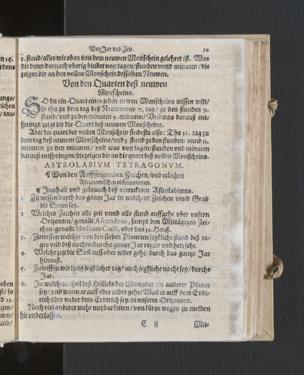 Von Jar vnd Zeit. 20
2. stund/alles wie oben von dem neuwen Monschein gelehret ist. Was
dir dann darnach vberig bleibet von tagen/stunden vnd minuten / die
zeigen dir an den vollen Monschein desselben Neuwen.
Von den Quarten deß neuwen
Monscheins.
SO du ein Quart eines jeden newen Monscheins wissen wilt/
so thu zu den tag deß Neumonens 7. tag / zu den stunden 9.
stund/ vnd zu den minuten 9. minuten/ Vnd was darauß ent-
springt zeigt dir die Quart deß neuwen Monscheins.
Aber die quart der vollen Monschein findestu also: Thu 22. tag zu
den tag deß neuwen Monscheins/vnd
minuten zu den minuten/ vnd was von tagen stunden vnd minuten
darauß entspringen/die zeigen dir an die quart deß vollen Monscheins.
ASTROLABIVM TETRAGONVM.
¶ Von den Auffsteigenden Zeichen/vnd etlichen
Astronomischen observationen.
¶ Innhalt vnd gebrauch deß viereckten Astrolabiums.
Zu wissen durch das gantz Jar in welchem Zeichen vnnd Grad
die Sonn sey.
2 Welches Zeichen alle zeit vnnd alle stund auffgehe vber vnsern
Orizonten/ genañt Ascendens, sampt dem Mittägigen Zei-
chen/genañt Medium Coeli, oder das 10. Hauß.
3 Zuwissen welcher von den sieben Planeten jegliche stund deß ta-
ges vnd deß nachts/durch das gantz Jar regier vnd herrsche.
4 Welche zeit die Soñ auff oder nider gehe/ durch das gantz Jar
hinauß.
5 Zuwissen wie lang jeglicher tag/ auch jegliche nacht sey/durchs
Jar.
6 In welchem theil deß Himels der Mon oder ein anderer Planet
sey/vnd wann er auff oder nider gehe/ Was er auff dem Erdt-
rich oder vnder dem Erdtrich sey in vnserm Orizonten.
Noch viel anderer mehr nutzbarkeiten / von kürtze wegen zu melden
hie vnderlassen.
C ij Mit-